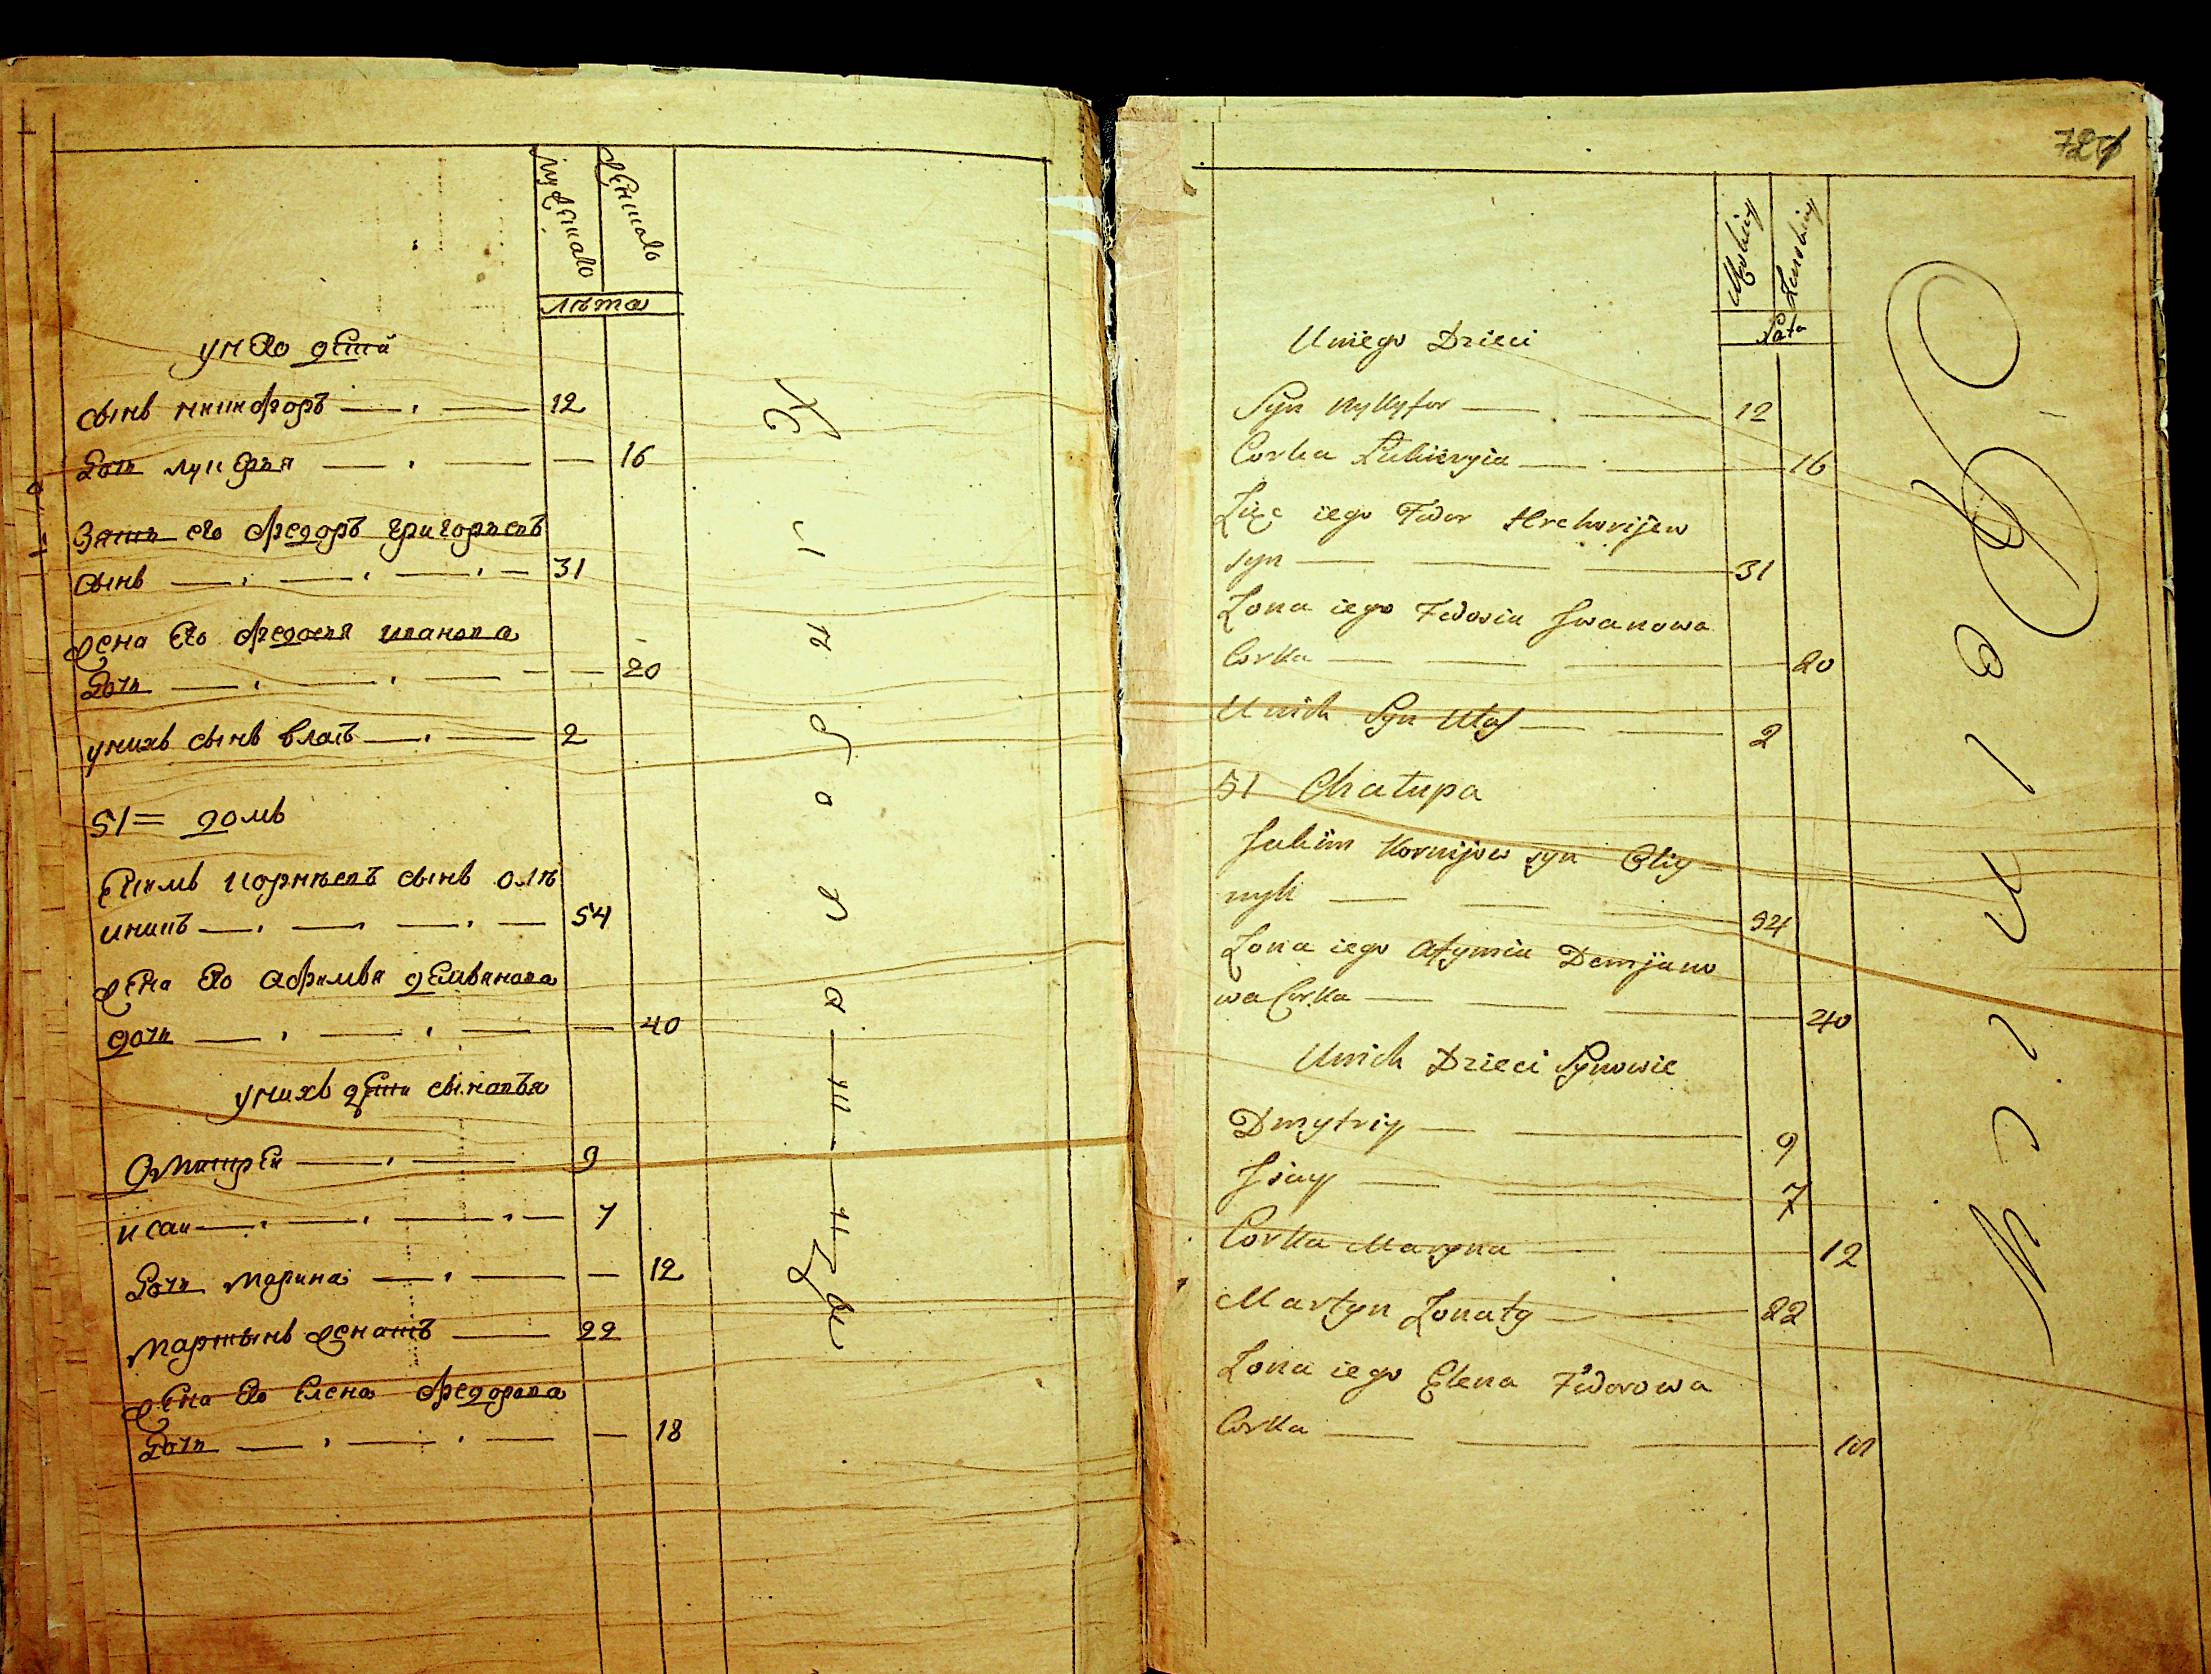 мужеска
женска
лѣта
у нево дети
сынъ никифоръ — 12
дочь лукерья — 16
Зять ево федоръ григорьевъ
сынъ — 31
жена Ево федосья иванова
дочь — 20
у нихъ сынъ власъ — 2
51 = домъ
Екимъ корнѣевъ сынъ олѣ
иникъ — 54
жена Ево афимья демьянова
дочь — 40
у нихъ дети сыновья
дмитрей — 9
исаи — 7
дочь марина — 12
мартынъ женатъ — 22
жена Ево Елена федорова
дочь — 18
Męskiey
Żenskiey
Lata
Uniego Dzieci
Syn Nykyfor — 12
Corka Łukieryia — 16
Zięc iego Fedor Hrehorijew
syn — 31
Zona iego Fedosia Jwanowa
Corka — 20
Unich Syn Ułas — 2
51 Chatupa
Jakim Kornijow syn Oliy
nyk — 54
Zona iego Afymia Demjano
wa Corka — 40
Unich Dzieci Synowie
Dmytriy — 9
Jsay — 7
Corka Maryna — 12
Martyn Zonaty — 22
Zona iego Elena Fedorowa
Corka — 18